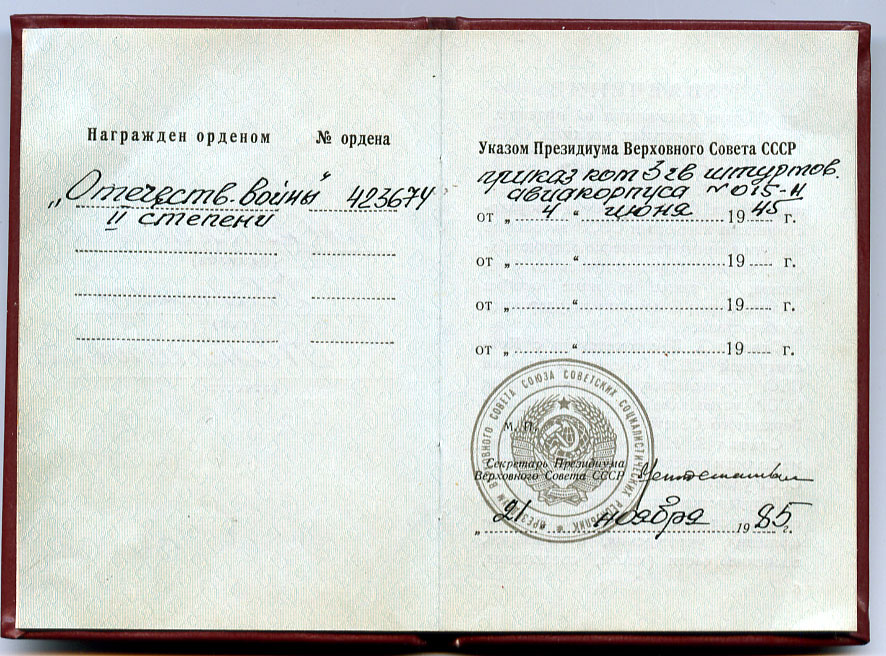 Награжден орденом № ордена
„Отечеств. войны" 423674
II степени
Указом Президиума Верховного Совета СССР
приказ ком 3 гв штурмов.
авиакорпуса № 015-н
от „ 4 “ июня 1945 г.
от „ “ 19 г.
от „ “ 19 г.
от „ “ 19 г.
ПРЕЗИДИУМ ВЕРХОВНОГО СОВЕТА СОЮЗА СОВЕТСКИХ СОЦИАЛИСТИЧЕСКИХ РЕСПУБЛИК
М. П.
Секретарь Президиума
Верховного Совета СССР
„ 21 “ ноября 1985 г.